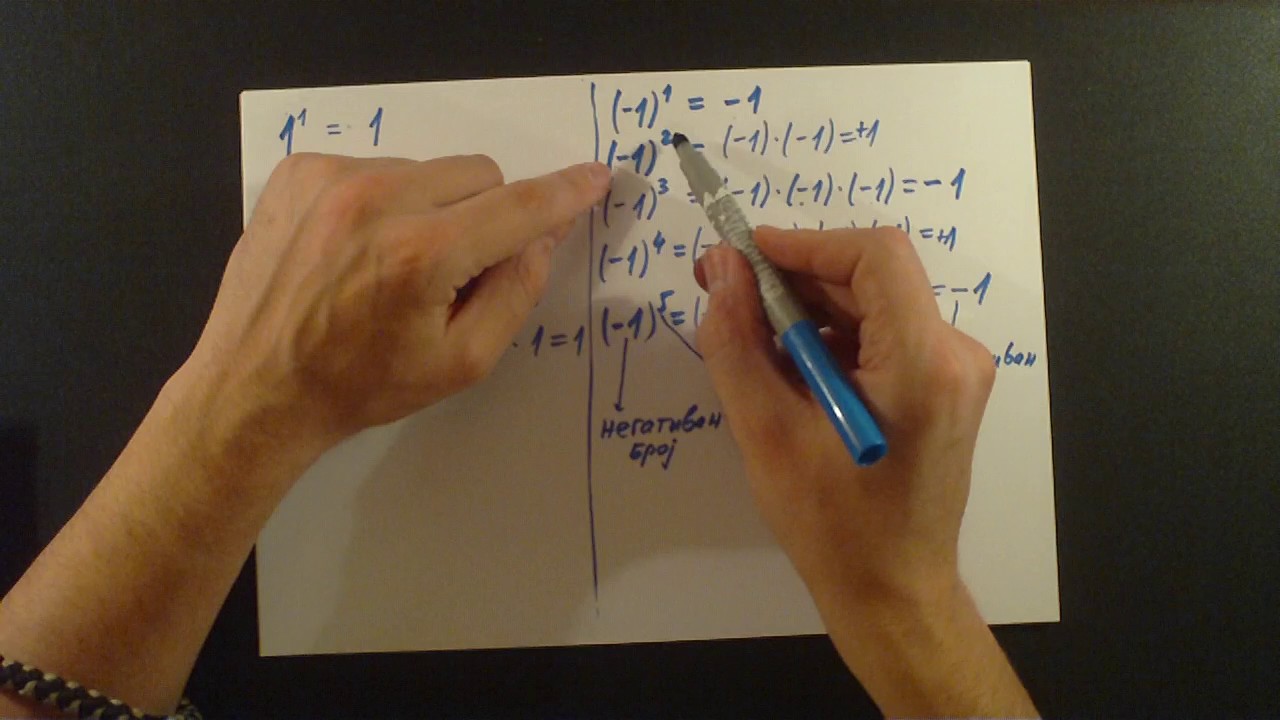 1¹ = 1
· 1 = 1
(-1)¹ = -1
(-1)² = (-1)·(-1) = +1
(-1)³ = (-1)·(-1)·(-1) = -1
(-1)⁴ = = +1
(-1)⁵ = = -1
негативан
број